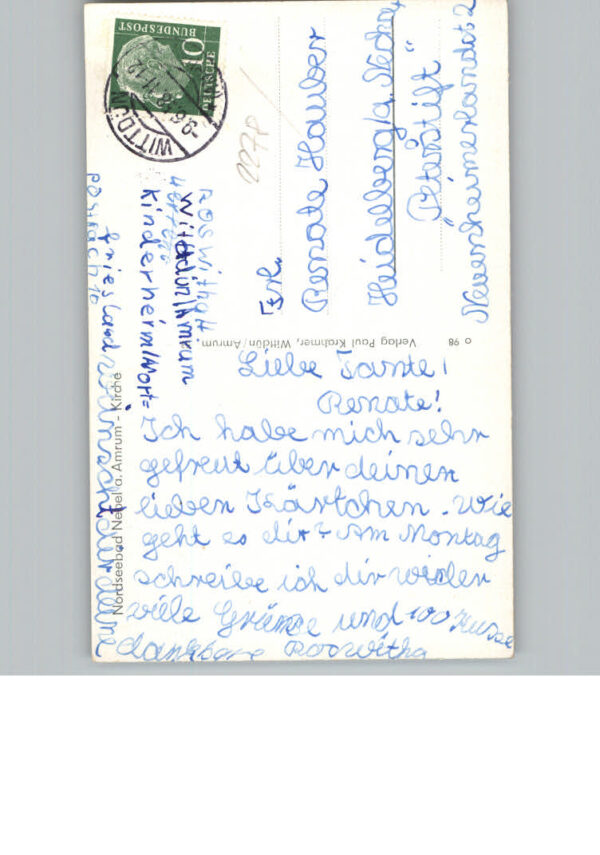 Liebe Tante!
Renate!
Ich habe mich sehr
gefreut über deinen
lieben Kärtchen. Wie
geht es dir? Am Montag
schreibe ich dir wieder
viele Grüße und 100 Kusse
dankbare Roswitha
wünscht dir deine
Frl.
Renate Hauber
Heidelberg/a. Neckar
"Peterstift"
Neuenheimerlandstr 2
Roswitha H
Wittdün/Amrum
Kinderheim/Mori=
2278
DEUTSCHE
BUNDESPOST
10
WITTDÜN
Nordseebad Nebel a. Amrum - Kirche
Verlag Paul Krahmer, Wittdün/Amrum,
o 98